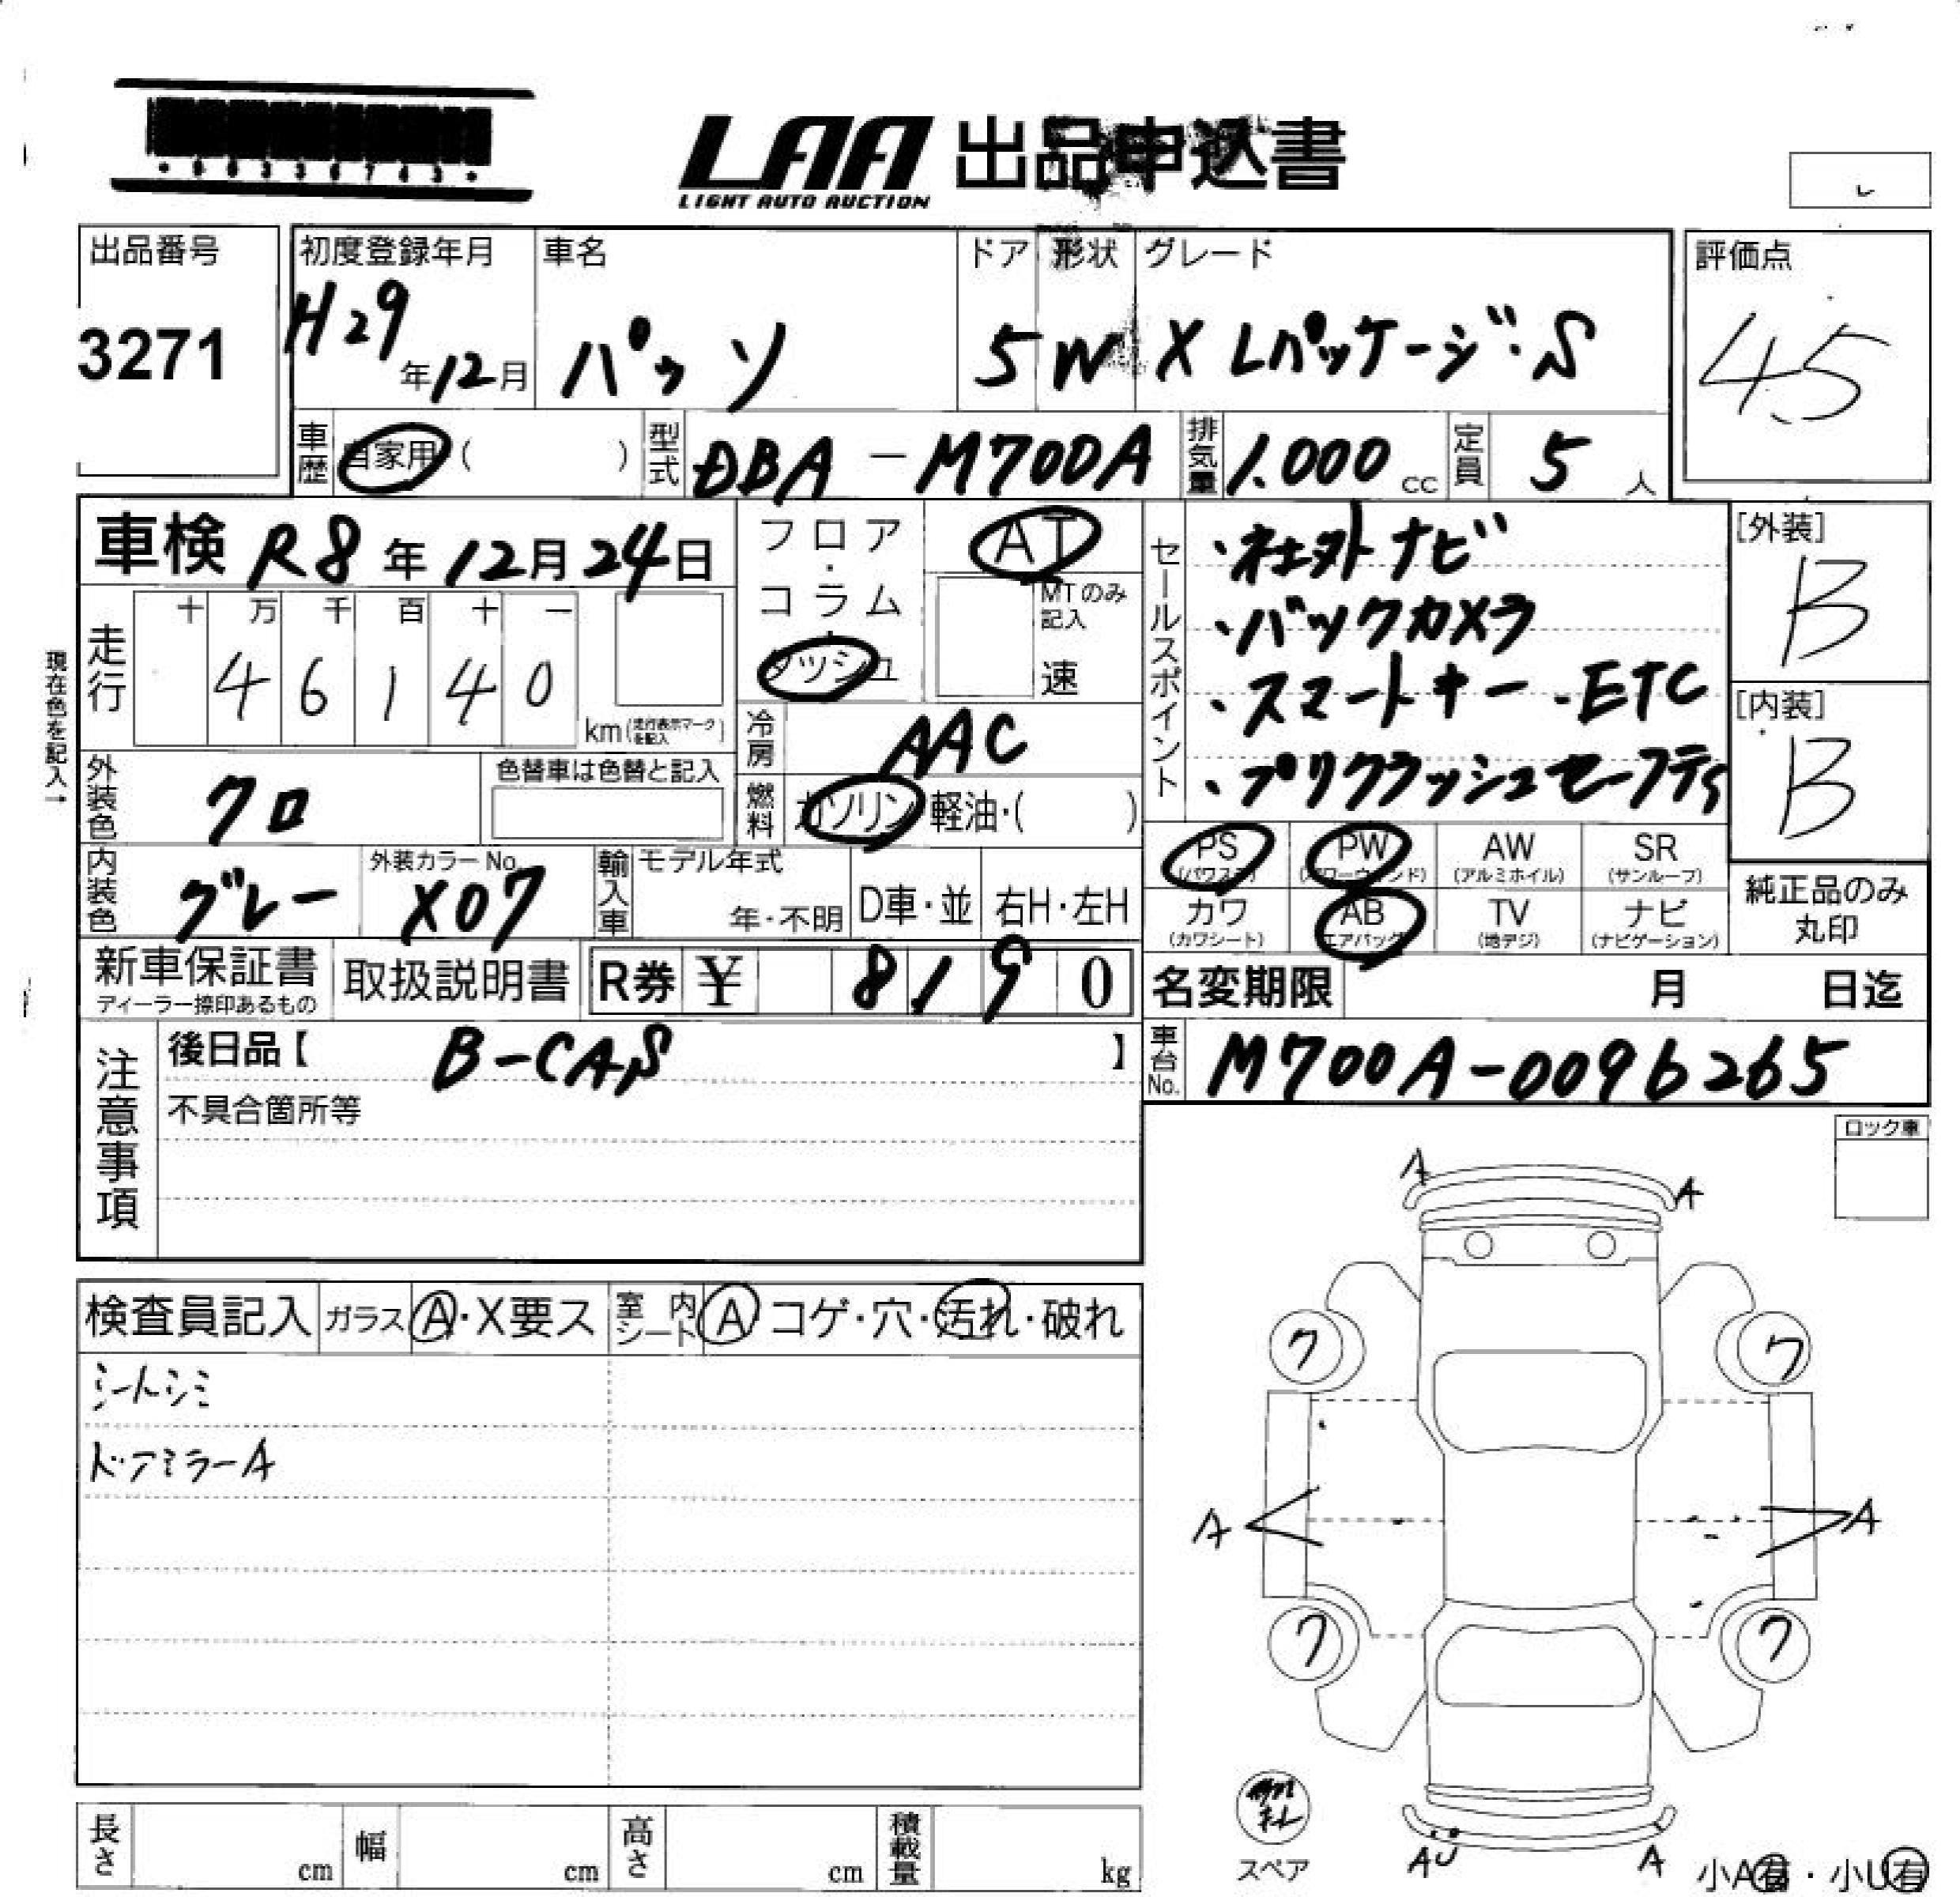 LAA 出品申込書
LIGHT AUTO AUCTION
出品番号
3271
初度登録年月
H29年12月
車名
パッソ
ドア
5
形状
W
グレード
X Lパッケージ・S
評価点
4.5
車歴 自家用 ( )
型式 DBA-M700A
排気量 1.000 cc
定員 5 人
車検 R8年12月24日
フロア・コラム・ダッシュ
AT
MTのみ記入
速
現在色を記入→
走行
十 万 千 百 十 一
4 6 1 4 0
km (走行表示マークを記入)
冷房 AAC
燃料 ガソリン 軽油・( )
外装色 クロ
色替車は色替と記入
内装色 グレー
外装カラーNo. X07
輸入車 モデル年式
年・不明
D車・並
右H・左H
セールスポイント
・社外ナビ
・バックカメラ
・スマートキー ・ETC
・プリクラッシュセーフティS
[外装]
B
[内装]
B
PS (パワステ)
PW (パワーウィンド)
AW (アルミホイル)
SR (サンルーフ)
カワ (カワシート)
AB (エアバッグ)
TV (地デジ)
ナビ (ナビゲーション)
純正品のみ
丸印
新車保証書
ディーラー捺印あるもの
取扱説明書
R券 ¥ 8190
名変期限 月 日迄
車台No. M700A-0096265
注意事項
後日品【 B-CAS 】
不具合箇所等
ロック車
検査員記入
ガラス A・X要ス
室内シート A コゲ・穴・汚れ・破れ
シートシミ
ドアミラーA
A
A
ワ
ワ
A
A
ワ
ワ
スペア
AU
A
小A有・小U有
長さ cm
幅 cm
高さ cm
積載量 kg